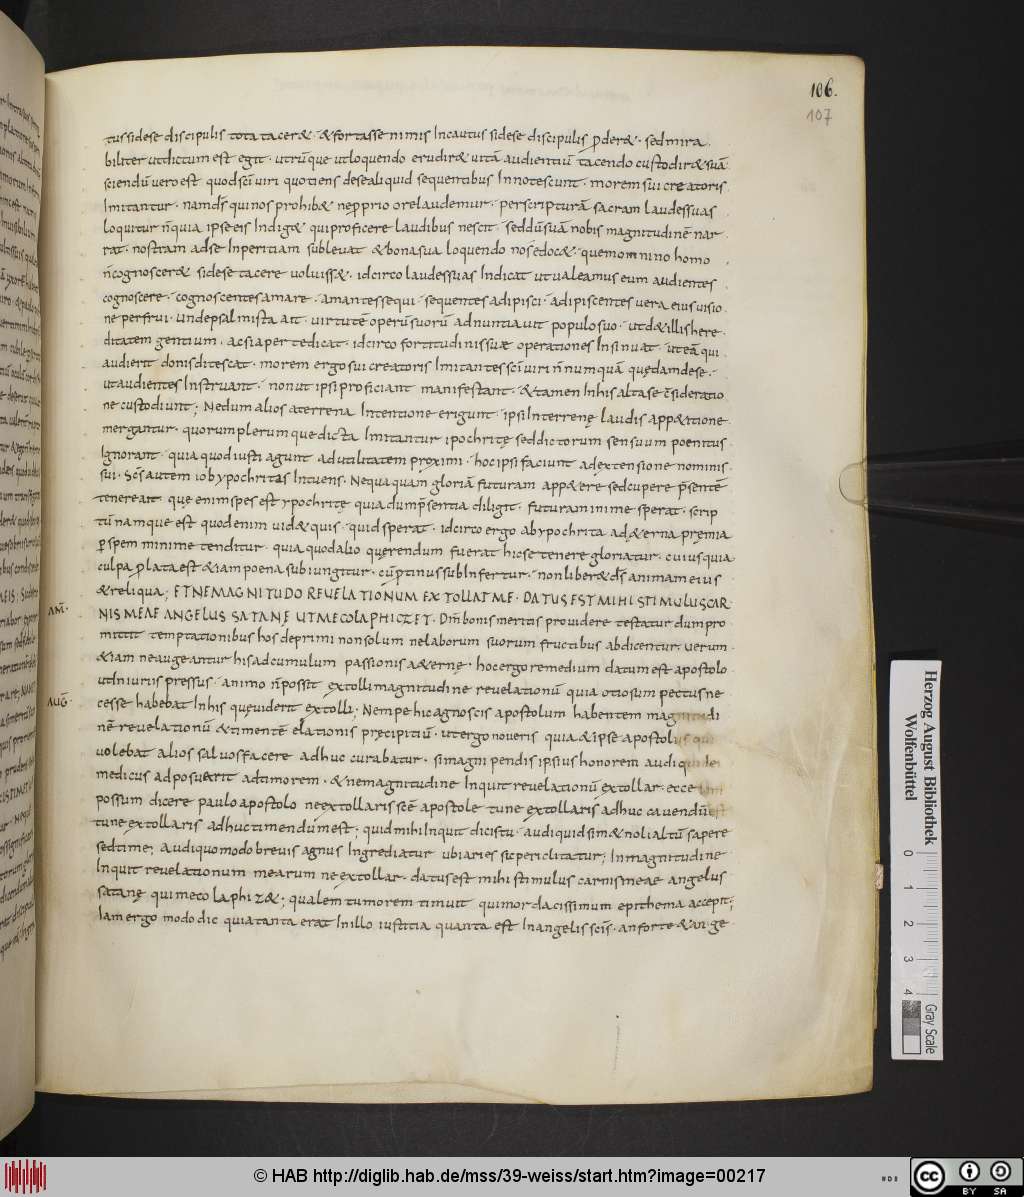 106.
107
tus si dese discipulis tota tacer& · & fortasse nimis Incautus si dese discipulis ꝑder& · sed mira
biliter ut dictum est egit · utrūque ut loquendo erudir& uitā audientiū tacendo custodir& suā
sciendū uero est quod scī uiri quotiens de se aliquid sequentibus Innotescunt · morem sui creatoris
Imitantur · nam ds̄ qui nos prohib& ne ꝓprio ore laudemur · per scripturā sacram laudes suas
loquitur n̄ quia ipse eis Indig& qui proficere laudibus nescit · sed dū suā nobis magnitudinē nar
rat · nostram ad se Inperitiam subleuat & bona sua loquendo nos edoc& · quem omnino homo
n̄ cognoscer& si de se tacere uoluiss& · idcirco laudes suas Indicat ut ualeamus eum audientes
cognoscere · cognoscentes amare · amantes sequi · sequentes adipisci · adipiscentes uera eius uisio
ne perfrui · unde psalmista ait · uirtutē operū suorū adnuntiauit populo suo · ut d& illis here
ditatem gentium · ac si aperte dicat · idcirco fortitudinis suae operationes Insinuat · ut eā qui
audierit donis ditescat · morem ergo sui creatoris Imitantes scī uiri n̄ numquā quędam de se ·
ut audientes Instruant · non ut ipsi proficiant manifestant · & tamen In his alta se c̄sideratio
ne custodiunt; Ne dum alios a terrena Intentione erigunt · ipsi In terrenę laudis app&itione
mergantur · quorum plerumque dicta Imitantur ipochritę sed dictorum sensuum poenitus
Ignorant · quia quod iusti agunt ad utilitatem proximi · hoc ipsi faciunt ad extensione nominis
sui · Scs̄ autem iob ypochritas Intuens · Nequaquam gloriā futuram app&ere sed cupere p̄sentē
tenere ait quę enim spes est ypochritę quia dum p̄sentia diligit · futura minime sperat · scrip
tū namque est quod enim uid& quis · quid sperat · idcirco ergo ab ypochrita ad ęterna pręmia
ꝑ spem minime tenditur · quia quod alio querendum fuerat hic se tenere gloriatur · cuius quia
culpa ꝓlata est & iam poena subiungitur · cū ꝓtinus subInfertur · non liber& ds̄ animam eius
AM̄ ·
& reliqua; ET NE MAGNITUDO REUELATIONUM EXTOLLAT ME · DATUS EST MIHI STIMULUS CAR
NIS MEAE ANGELUS SATANE UT ME COLAPHIZET · Dm̄ bonis meritis prouidere testatur dum pro
mittit temptationibus hos deprimi non solum ne laborum suorum fructibus abdicentur uerum
& iam ne augeantur his ad cumulum passionis a&ernę · hoc ergo remedium datum est apostolo
ut Iniuriis pressus · animo n̄ possit extolli magnitudine reuelationū quia otiosum pectus ne
AUḠ ·
cesse habebat In his quę uiderit extolli; Nempe hic agnoscis apostolum habentem magnitudi
nē reuelationū & timentē elationis pręcipitiū · ut ergo noueris quia & ipse apostolus qui
uolebat alios saluos facere adhuc curabatur · si magni pendis ipsius honorem audi quid ei
medicus adposuerit ad timorem · & ne magnitudine Inquit reuelationū extollar · ecce
possum dicere paulo apostolo ne extollaris scē apostole tu ne extollaris adhuc cauendū est
tu ne extollaris adhuc timendum est; quid mihi Inquit dicis tu · audi quid sim & noli altū sapere
sed time; Audi quomodo breuis agnus Ingrediatur ubi aries sic periclitatur; In magnitudine
Inquit reuelationum mearum ne extollar · datus est mihi stimulus carnis meae angelus
satanę qui me colaphiz&; qualem tumorem timuit qui mordacissimum epithema accepit;
Iam ergo modo dic quia tanta erat In illo iustitia quanta est In angelis scīs · an forte & an ge
Herzog August Bibliothek
Wolfenbüttel
0 1 2 3 4
Gray Scale
© HAB http://diglib.hab.de/mss/39-weiss/start.htm?image=00217
cc BY SA